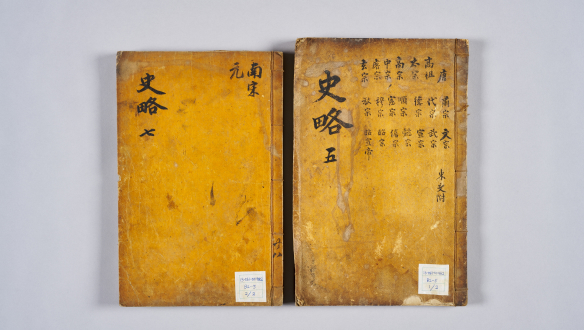 南宋
元
史略 七
唐 肅宗 文宗
高祖 代宗 武宗
太宗 德宗 宣宗
高宗 順宗 懿宗
中宗 憲宗 僖宗
睿宗 穆宗 昭宗
玄宗 敬宗 昭宣帝
史略 五